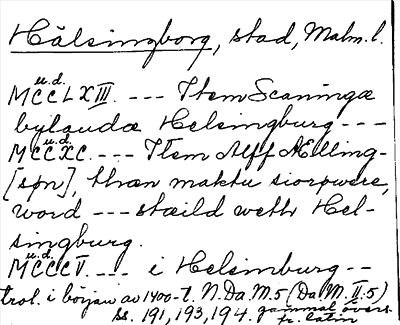 Hälsingborg, stad, Malm. l.
u.d.
MCCLXIII. --- Item Scaningæ
bylandæ Helsingburg ---
u.d.
MCCXC. --- Item Alff Ælling-
[spn], thæn maktu siorpwere,
word --- stæild weth Hel-
singburg.
u.d.
MCCCV. --- i Helsimburg --
trol. i början av 1400-t. N.Da.M.5 (Da M. II:5)
ss. 191, 193, 194. gammal övers.
fr. latin